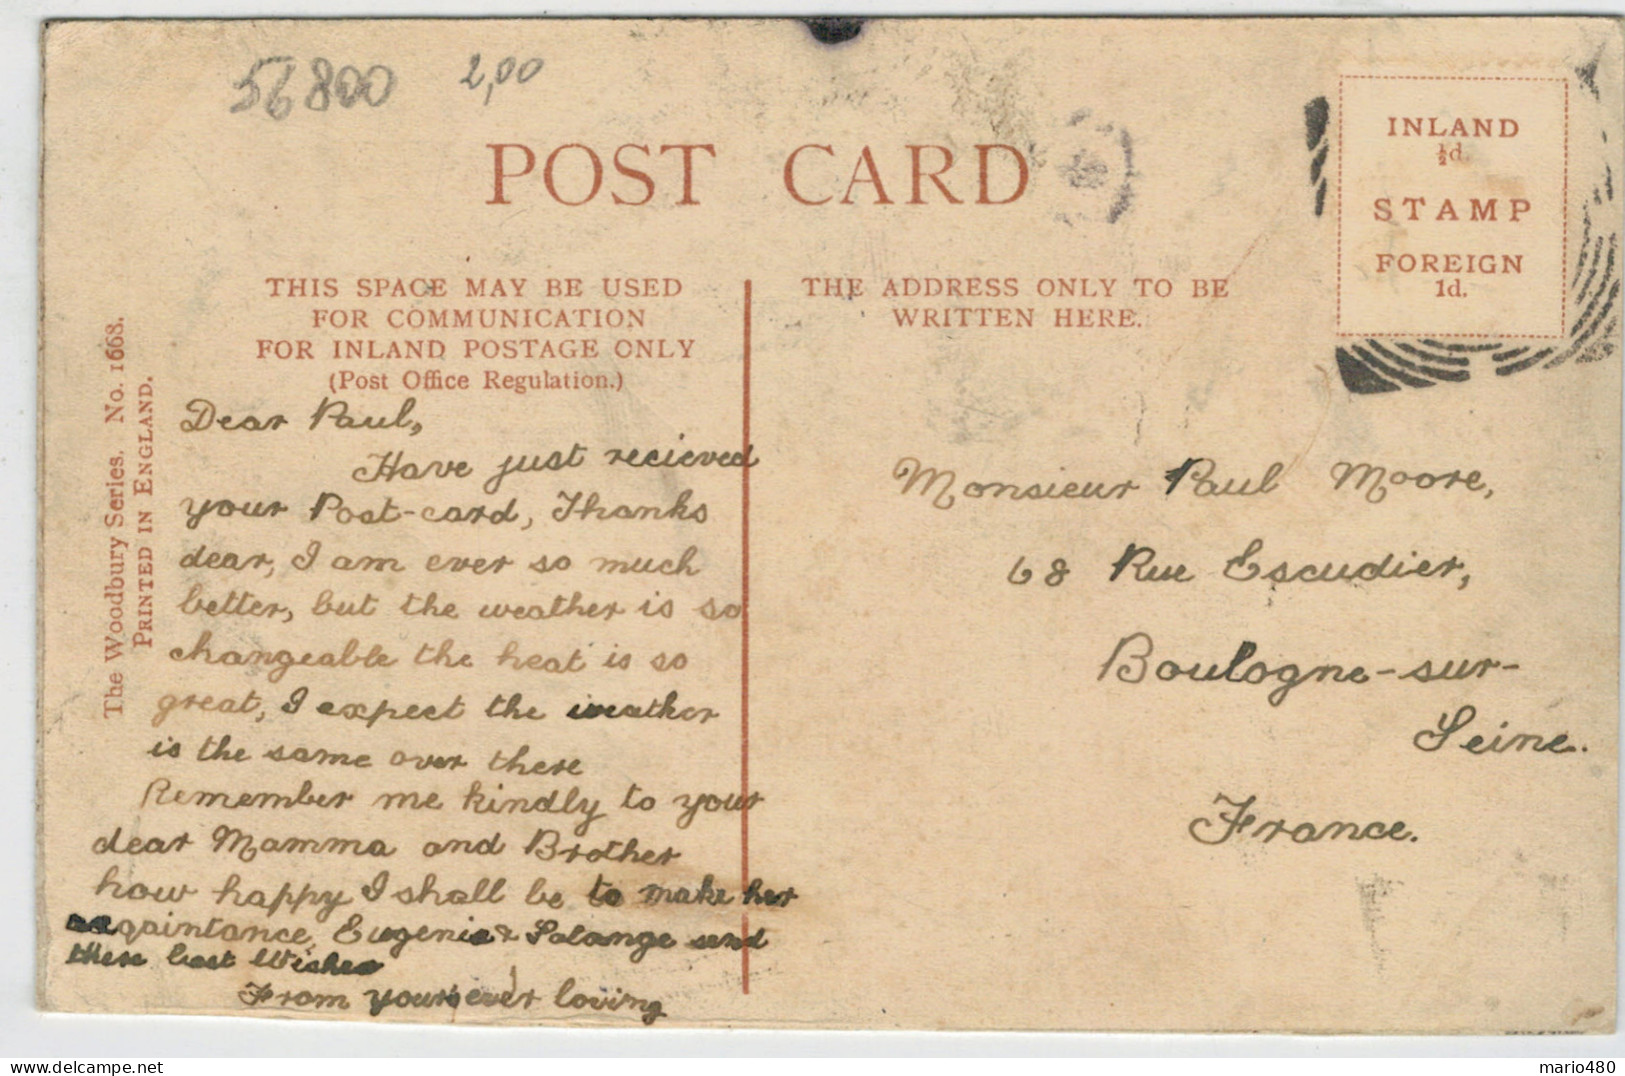 56800 2,00
POST CARD
INLAND
½d.
STAMP
FOREIGN
1d.
THIS SPACE MAY BE USED
FOR COMMUNICATION
FOR INLAND POSTAGE ONLY
(Post Office Regulation.)
THE ADDRESS ONLY TO BE
WRITTEN HERE.
The Woodbury Series. No. 1668.
PRINTED IN ENGLAND.
Dear Paul,
Have just recieved
your Post-card, Thanks
dear, I am ever so much
better, but the weather is so
changeable the heat is so
great, I expect the weather
is the same over there
Remember me kindly to your
dear Mamma and Brother
how happy I shall be to make her
aqaintance, Eugenie & Solange send
there best Wishes
From yours ever loving
Monsieur Paul Moore,
68 Rue Escudier,
Boulogne-sur-
Seine.
France.
delcampe.net
mario480